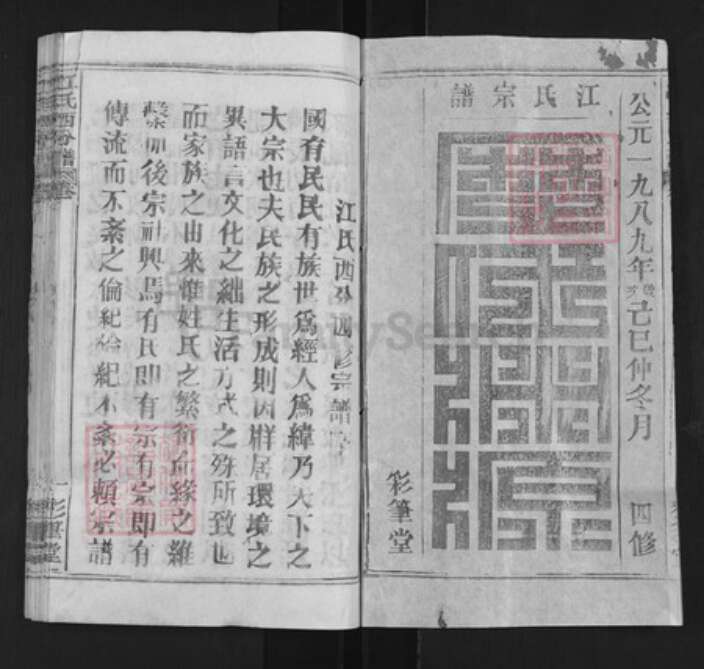 江氏宗譜
公元一九八九年歲次己巳仲冬月 四修
彩筆堂
江氏酉分四修宗譜序
國有民民有族世爲經人爲緯乃天下之
大宗也夫民族之形成則因群居環境之
異語言文化之絀生活方式之殊所致也
而家族之由來惟姓氏之繁衍血緣之維
繫而後宗祖興焉有民即有宗有宗即有
傳流而不紊之倫紀倫紀不紊必賴宗譜
江氏酉分譜
彩筆堂